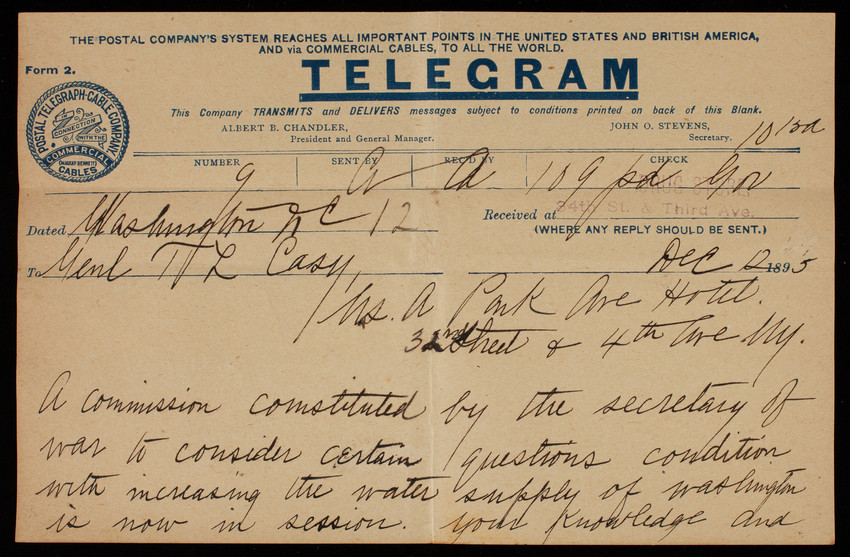 THE POSTAL COMPANY'S SYSTEM REACHES ALL IMPORTANT POINTS IN THE UNITED STATES AND BRITISH AMERICA,
AND via COMMERCIAL CABLES, TO ALL THE WORLD.
Form 2.
TELEGRAM
POSTAL TELEGRAPH-CABLE COMPANY
CONNECTION
WITH THE
COMMERCIAL
(MACKAY-BENNETT)
CABLES
This Company TRANSMITS and DELIVERS messages subject to conditions printed on back of this Blank.
ALBERT B. CHANDLER, JOHN O. STEVENS,
President and General Manager. Secretary.
NUMBER SENT BY REC'D BY CHECK
9 A 109 pd Gov
Received at 34th St. & Third Ave.
Dated Washington DC 12
(WHERE ANY REPLY SHOULD BE SENT.)
To Genl T L Casy, Dec 12 1895
U.S. A Park Ave Hotel.
32nd Street & 4th Ave NY.
A commission comstituted by the secretary of
war to consider certain questions condition
with increasing the water supply of washington
is now in session. your knowledge and